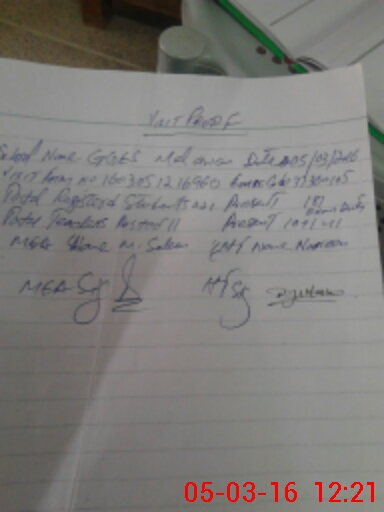 VISIT PROOF
School Name GGES Malowan Date 05/03/2016
Visit Form no 1603051216960 Emis Code 37330105
Total Registered Students 221 Present 181
Total Teachers Posted 11 Present 10+1=11
MEA Name M. Saleem HT Name Nasreen
MEA Sig HT Sig
05-03-16 12:21